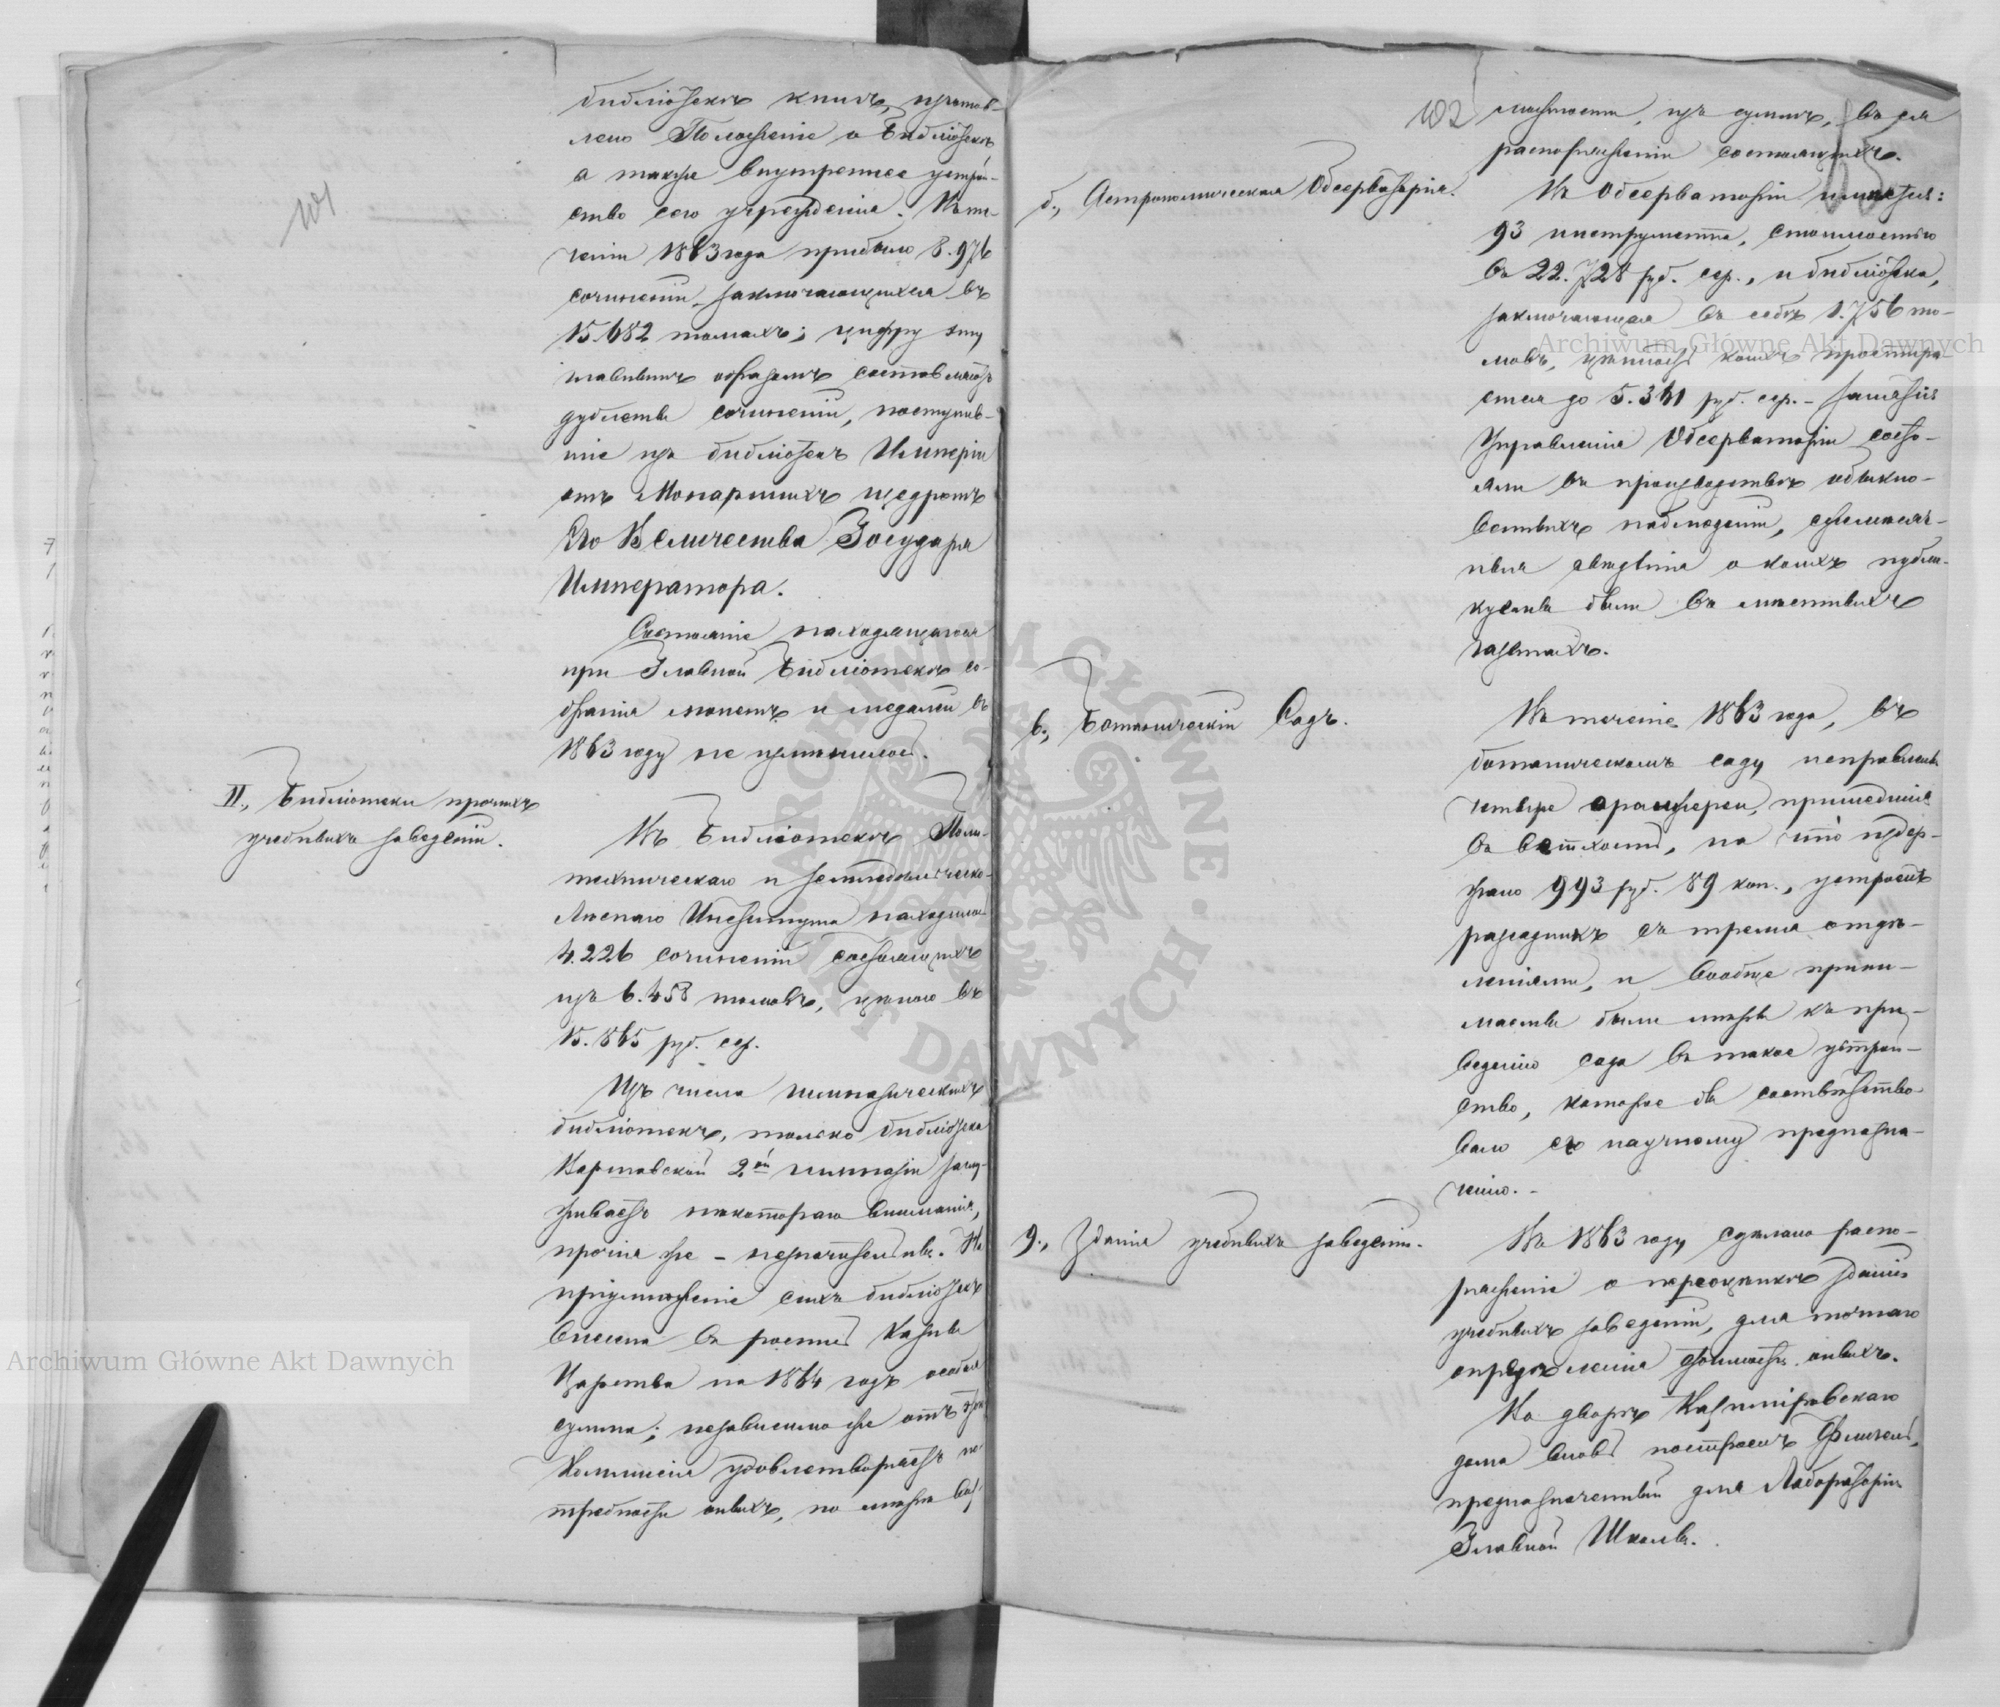 101
библіотекъ книгъ, изготов-
лено Положеніе о Библіотекѣ
а также внутреннее устрой-
ство сего учрежденія. Въ те-
ченіи 1863 года прибыло 8.976
сочиненій заключающихся въ
15.682 томахъ; цифру эту
главнымъ образомъ составляютъ
дублеты сочиненій, поступив-
шіе изъ библіотекъ Имперіи
отъ Монаршихъ щедротъ
Его Величества Государя
Императора.
Состояніе находящагося
при Главной Библіотекѣ со-
бранія монетъ и медалей въ
1863 году не измѣнилось.
II., Библіотеки прочихъ
учебныхъ заведеній.
Въ Библіотекѣ Поли-
техническаго и Земледѣльческо-
Лѣснаго Института находилось
4.226 сочиненій состоящихъ
изъ 6.458 томовъ, цѣною въ
15.865 руб. сер.
Изъ числа гимназическихъ
библіотекъ, только библіотека
Варшавской 2ой гимназіи заслу-
живаетъ нѣкотораго вниманія,
прочія же – незначительны. На
пріумноженіе сихъ библіотекъ
внесена въ роспись Казны
Царства на 1864 годъ особая
сумма; независимо же отъ этой
Коммисія удовлетворяетъ по-
требности оныхъ, по мѣрѣ воз-
102
можности, изъ суммъ, въ ея
распоряженіи состоящихъ.
б., Астрономическая Обсерваторія.
Въ Обсерваторіи имѣются:
93 инструмента, стоимостью
въ 22.728 руб. сер., и библіотека,
заключающая въ себѣ 1.756 то-
мовъ, цѣнность коихъ простира-
ется до 5.361 руб. сер. – Занятія
Управленія Обсерваторіи состо-
яли въ производствѣ обыкно-
венныхъ наблюденій, ежемѣсяч-
ныя свѣдѣнія о коихъ публи-
куемы были въ мѣстныхъ
газетахъ.
в., Ботаническій Садъ.
Въ теченіе 1863 года, въ
ботаническомъ саду исправлены
четыре оранжереи, пришедшія
въ ветхость, на что издер-
жано 993 руб. 89 коп., устроенъ
разсадникъ съ тремя отдѣ-
леніями, и вообще прини-
маемы были мѣры къ при-
веденію сада въ такое устрой-
ство, которое бы соотвѣтство-
вало его научному предназна-
ченію. –
9., Зданія учебныхъ заведеній.
Въ 1863 году сдѣлано распо-
ряженіе о переоцѣнкѣ зданій
учебныхъ заведеній, для точнаго
опредѣленія стоимости оныхъ.
На дворѣ Казимировскаго
дома вновь построенъ Флигель,
предназначенный для Лабораторіи
Главной Школы.
Archiwum Główne Akt Dawnych
Archiwum Główne Akt Dawnych
ARCHIWUM GŁÓWNE AKT DAWNYCH